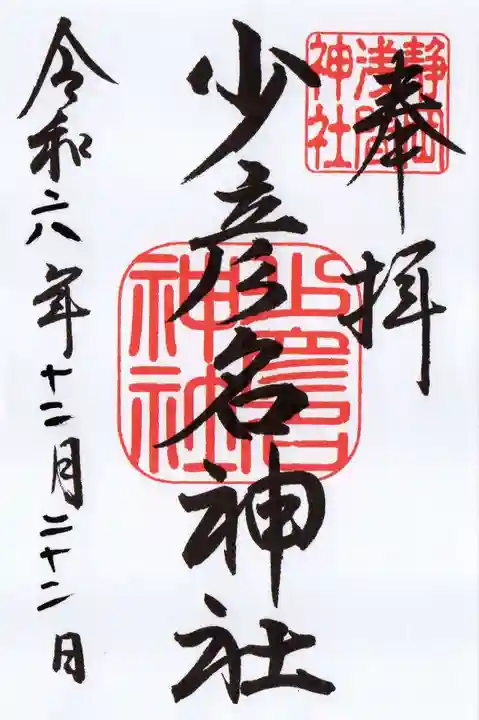 奉拝
静岡
浅間
神社
少彦名神社
神社
令和六年十二月二十二日